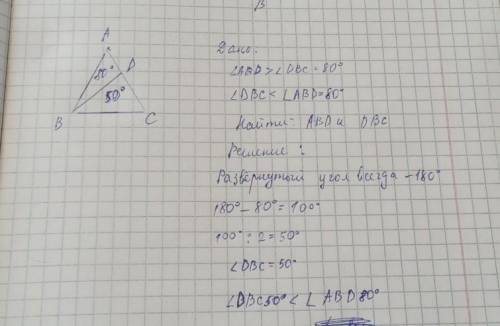 В
A
D
80°
50°
B
C
Дано:
∠ABD > ∠DBC = 80°
∠DBC < ∠ABD = 80°
Найти: ABD и DBC
Решение:
Развёрнутый угол всегда - 180°
180° - 80° = 100°
100° : 2 = 50°
∠DBC = 50°
∠DBC 50° < ∠ABD 80°